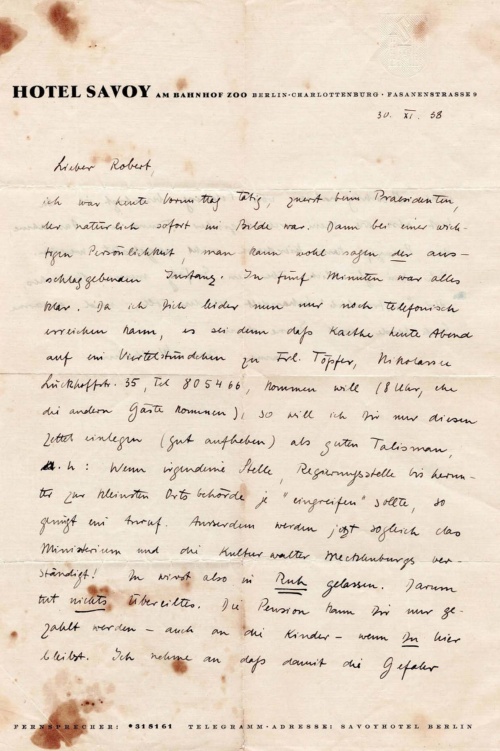 HOTEL SAVOY AM BAHNHOF ZOO BERLIN-CHARLOTTENBURG · FASANENSTRASSE 9
30. XI. 58
Lieber Robert,
ich war heute Vormittag tätig, zuerst beim Praesidenten,
der natürlich sofort im Bilde war. Dann bei einer wich-
tigen Persönlichkeit, man kann wohl sagen der aus-
schlaggebenden Instanz. In fünf Minuten war alles
klar. Da ich Dich leider nun nur noch telefonisch
erreichen kann, es sei denn daß Kaethe heute Abend
auf ein Viertelstündchen zu Frl. Töpfer, Nikolassee
Lückhoffstr. 35, Tel 805466, kommen will (8 Uhr, ehe
die andern Gäste kommen), so will ich Dir nur diesen
Zettel einlegen (gut aufheben) als guten Talisman,
d.h: Wenn irgendeine Stelle, Regierungsstelle bis herun-
ter zur kleinsten Ortsbehörde je "eingreifen" sollte, so
genügt ein Anruf. Ausserdem werden jetzt sogleich das
Ministerium und die Kulturwalter Mecklenburgs ver-
ständigt! Du wirst also in Ruh gelassen. Darum
tut nichts Übereiltes. Die Pension kann Dir nur ge-
zahlt werden – auch an die Kinder – wenn Du hier
bleibst. Ich nehme an daß damit die Gefahr
FERNSPRECHER: *318161 TELEGRAMM-ADRESSE: SAVOYHOTEL BERLIN